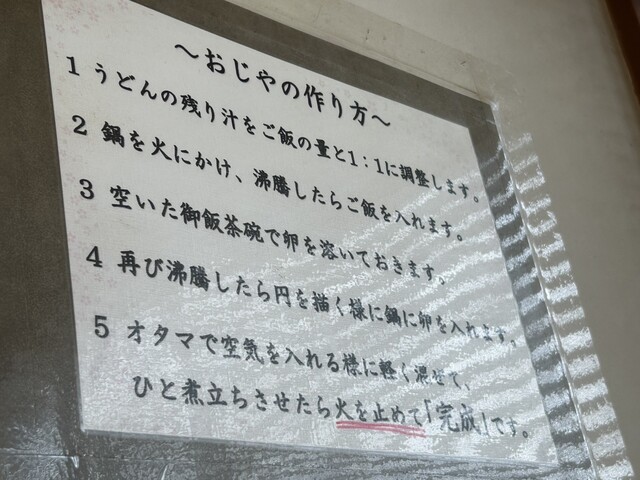 ～おじやの作り方～
1 うどんの残り汁をご飯の量と1：1に調整します。
2 鍋を火にかけ、沸騰したらご飯を入れます。
3 空いた御飯茶碗で卵を溶いておきます。
4 再び沸騰したら円を描く様に鍋に卵を入れます。
5 オタマで空気を入れる様に軽く混ぜて、
ひと煮立ちさせたら火を止めて「完成」です。